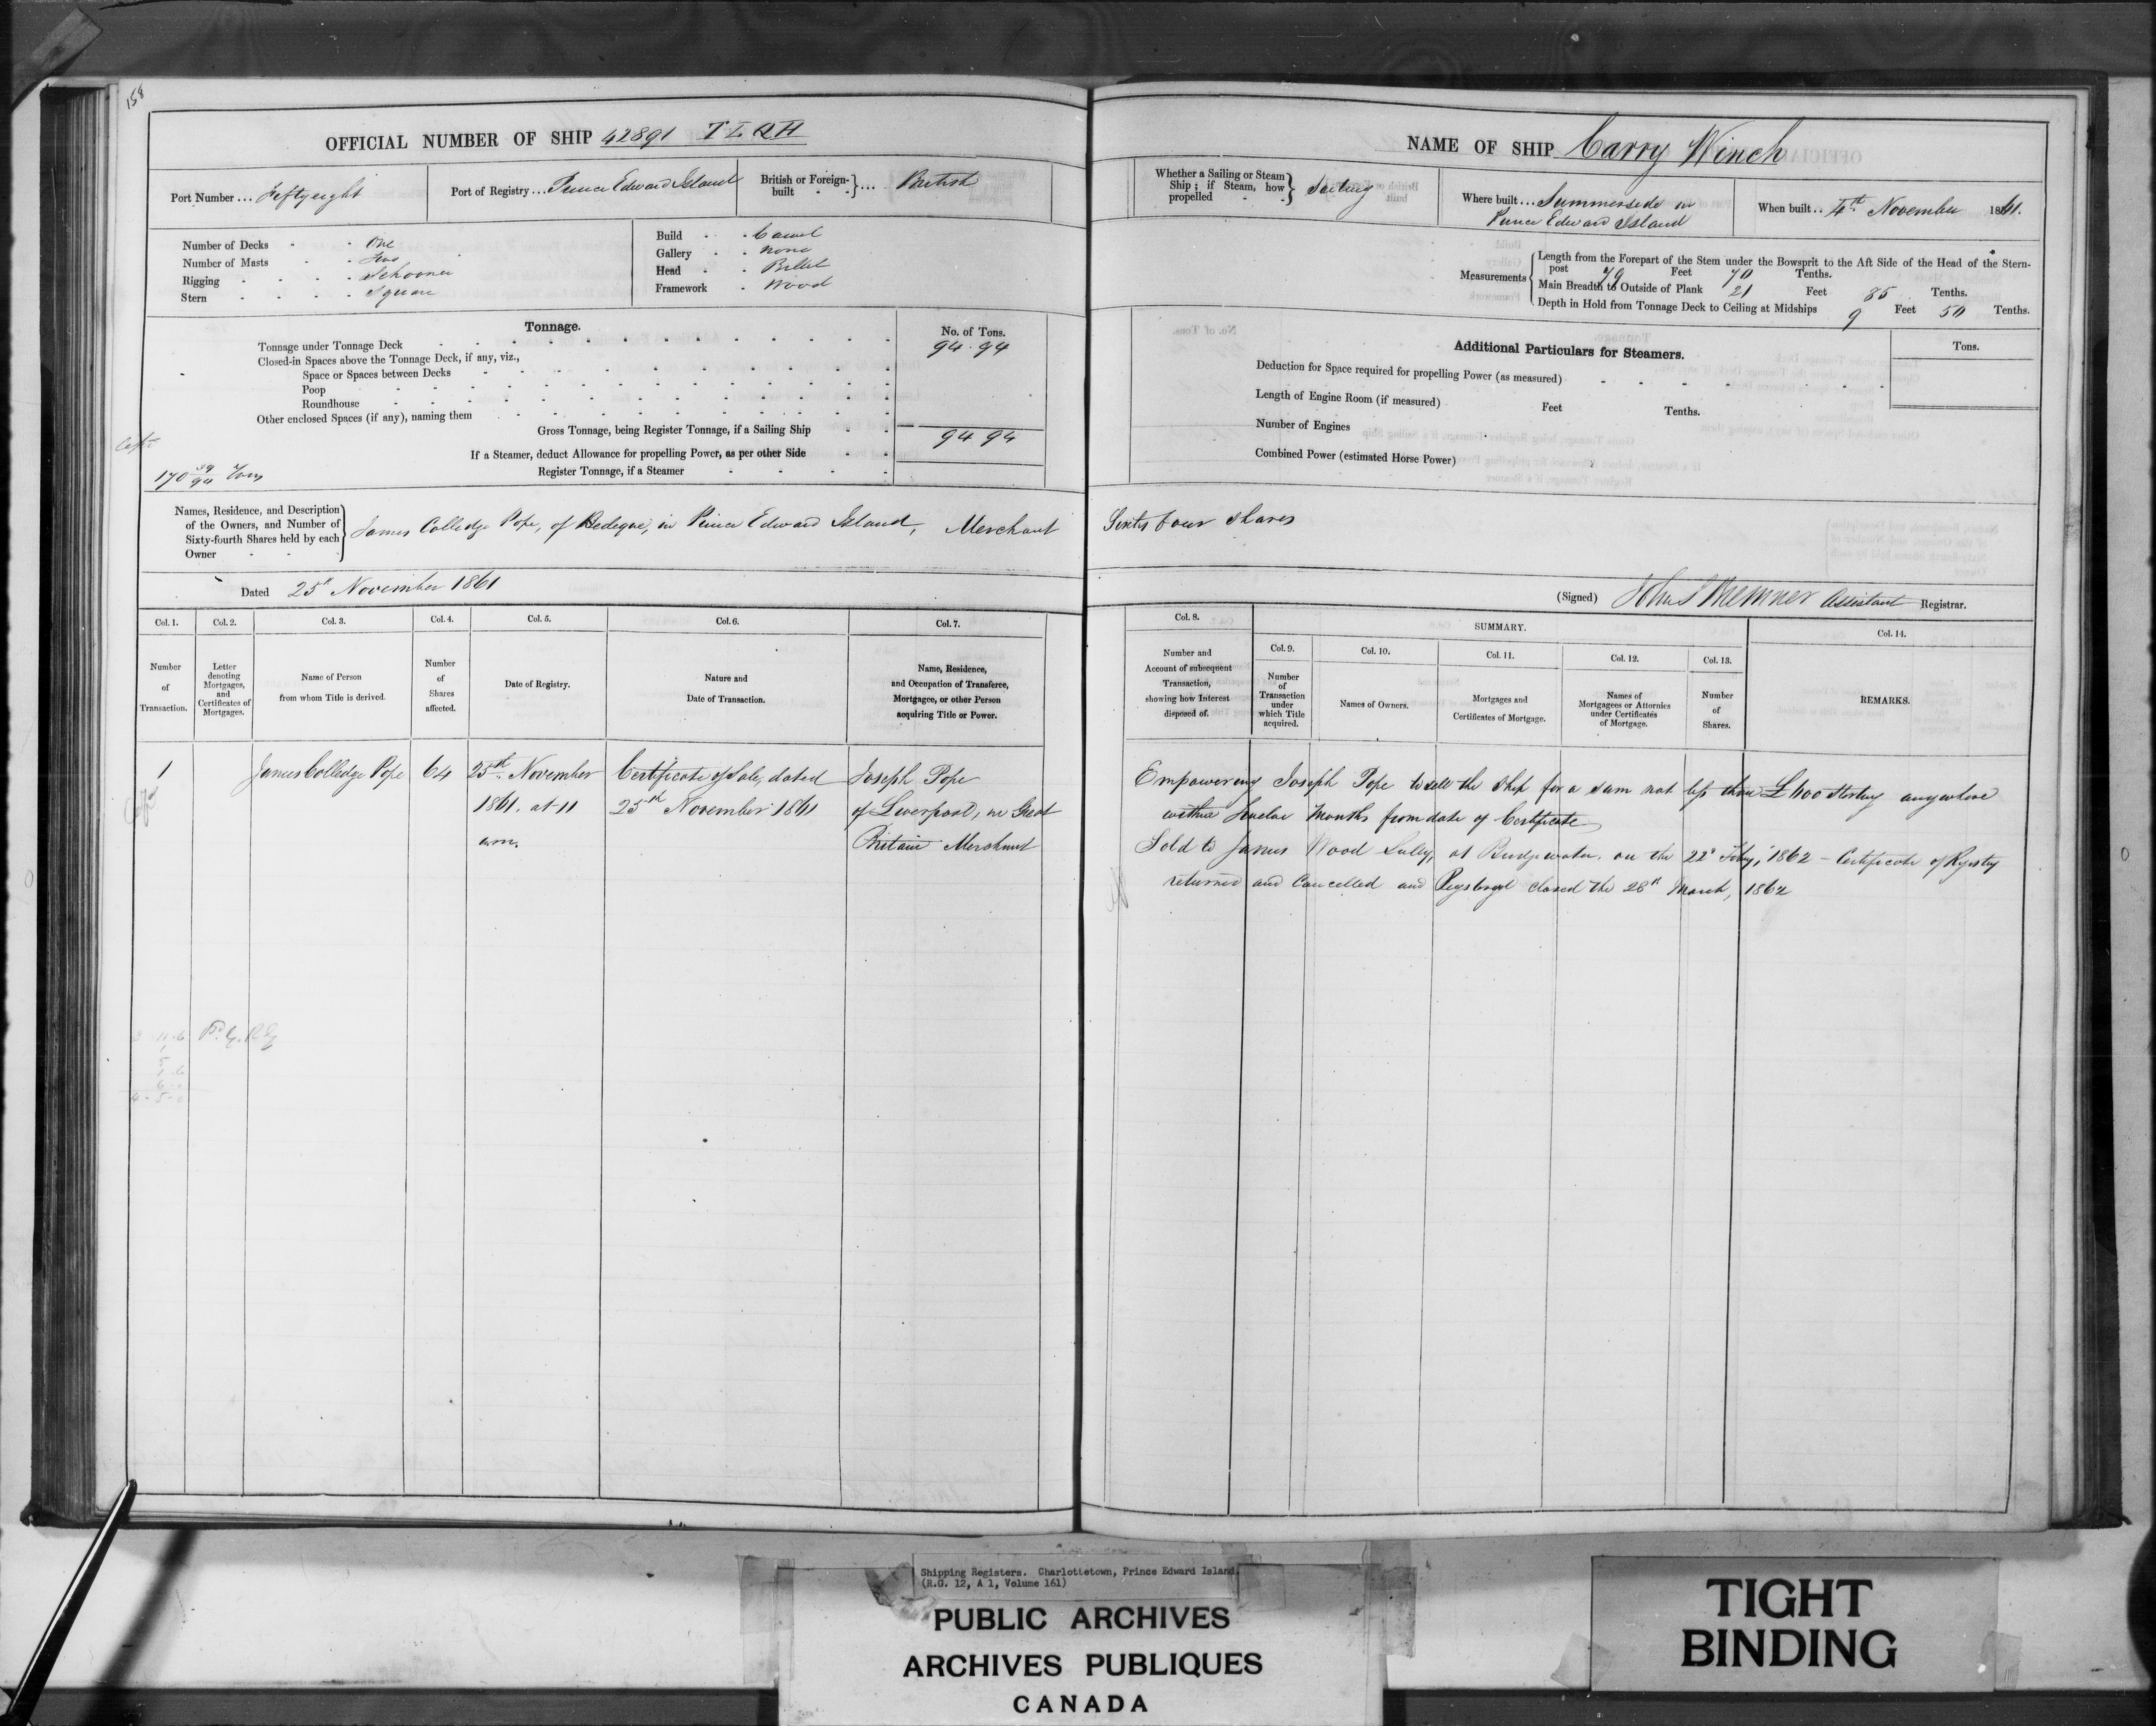 158
OFFICIAL NUMBER OF SHIP 42891 T L Q H
Port Number ... Fiftyeight
Port of Registry ... Prince Edward Island
British or Foreign-built } ... British
Number of Decks - - One
Number of Masts - - Two
Rigging - - - - Schooner
Stern - - - - Square
Build - - Carvel
Gallery - - None
Head - - Billet
Framework - Wood
Tonnage.
No. of Tons.
Tonnage under Tonnage Deck 94.94
Closed-in Spaces above the Tonnage Deck, if any, viz.,
Space or Spaces between Decks
Poop
Roundhouse
Other enclosed Spaces (if any), naming them
Gross Tonnage, being Register Tonnage, if a Sailing Ship 94 94
If a Steamer, deduct Allowance for propelling Power, as per other Side
Register Tonnage, if a Steamer
170 39/94 Tons
Names, Residence, and Description
of the Owners, and Number of
Sixty-fourth Shares held by each
Owner - -
James Colledge Pope, of Bedeque, in Prince Edward Island, Merchant
Dated 25th November 1861
Col. 1. Col. 2. Col. 3. Col. 4. Col. 5. Col. 6. Col. 7.
Number of Transaction.
Letter denoting Mortgages, and Certificates of Mortgages.
Name of Person from whom Title is derived.
Number of Shares affected.
Date of Registry.
Nature and Date of Transaction.
Name, Residence, and Occupation of Transferee, Mortgagee, or other Person acquiring Title or Power.
1 James Colledge Pope 64 25th November Certificate of Sale, dated Joseph Pope
1861. at 11 25th November 1861 of Liverpool, in Great
a.m. Britain Merchant
NAME OF SHIP Carry Winch
Whether a Sailing or Steam Ship; if Steam, how propelled - - } Sailing
Where built ... Summerside in
Prince Edward Island
When built .. 4th November 1861.
Measurements
Length from the Forepart of the Stem under the Bowsprit to the Aft Side of the Head of the Stern-
post 79 Feet 70 Tenths.
Main Breadth to Outside of Plank 21 Feet 85 Tenths.
Depth in Hold from Tonnage Deck to Ceiling at Midships 9 Feet 50 Tenths.
Additional Particulars for Steamers.
Tons.
Deduction for Space required for propelling Power (as measured)
Length of Engine Room (if measured) Feet Tenths.
Number of Engines
Combined Power (estimated Horse Power)
Sixty four Shares
(Signed) Assistant Registrar.
Col. 8. SUMMARY. Col. 14.
Col. 9. Col. 10. Col. 11. Col. 12. Col. 13.
Number and Account of subsequent Transaction, showing how Interest disposed of.
Number of Transaction under which Title acquired.
Names of Owners.
Mortgages and Certificates of Mortgage.
Names of Mortgagees or Attornies under Certificates of Mortgage.
Number of Shares.
REMARKS.
Empowering Joseph Pope to sell the Ship for a sum not less than £400 sterling anywhere
within Twelve Months from date of Certificate
Sold to James Wood at Bridgewater, on the 22d Feby, 1862 - Certificate of Registry
returned and Cancelled and closed the 28th March, 1862
Shipping Registers. Charlottetown, Prince Edward Island.
(R.G. 12, A 1, Volume 161)
PUBLIC ARCHIVES
ARCHIVES PUBLIQUES
CANADA
TIGHT
BINDING